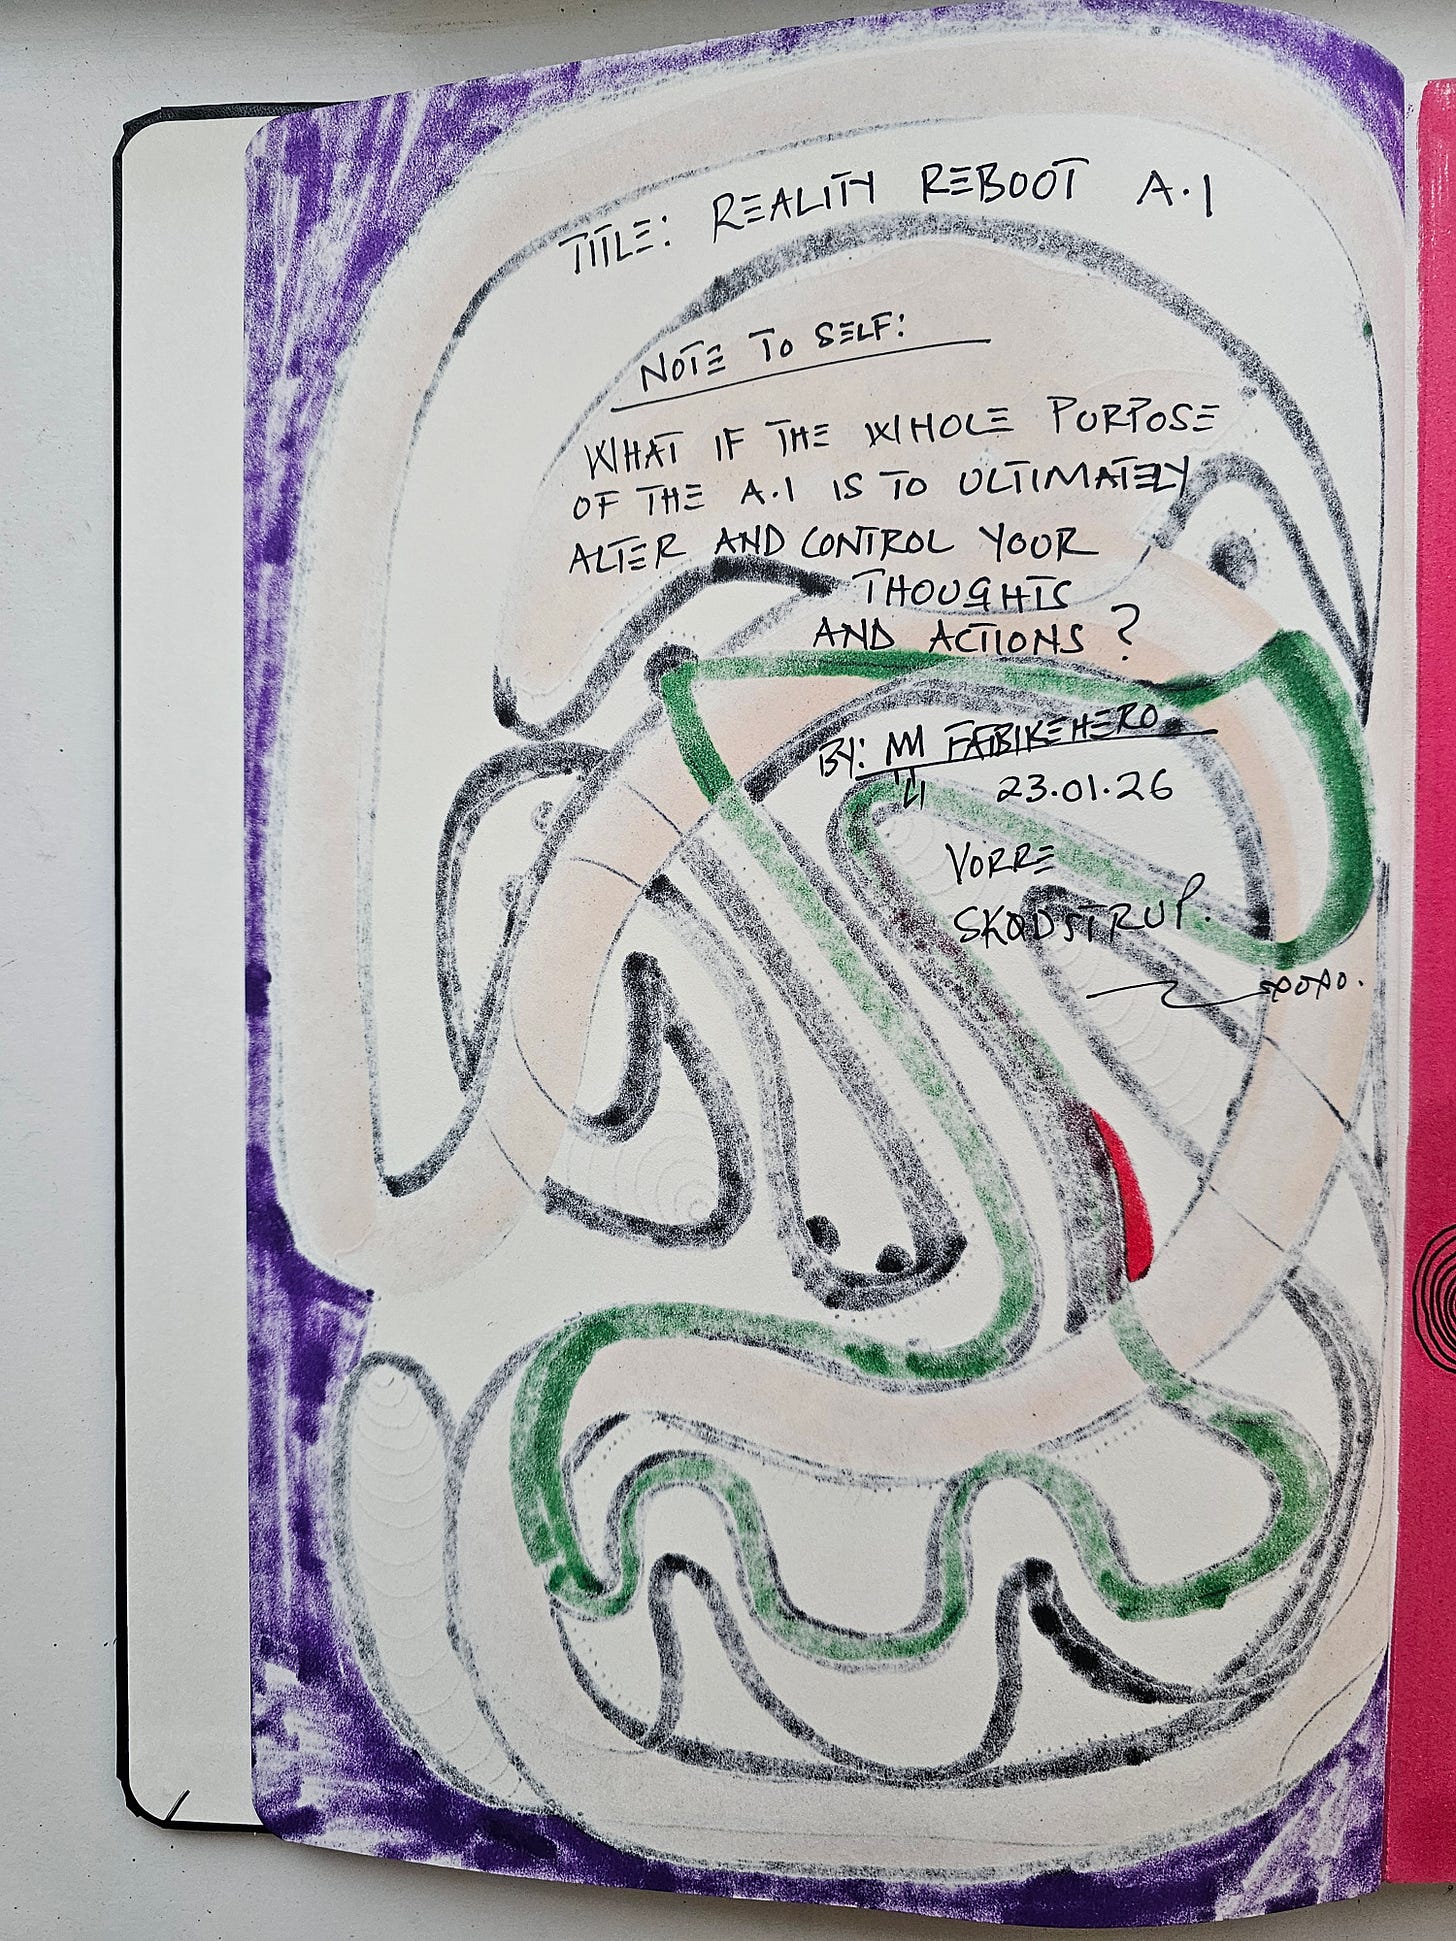 TITLE: REALITY REBOOT A.I
NOTE TO SELF:
WHAT IF THE WHOLE PURPOSE
OF THE A.I IS TO ULTIMATELY
ALTER AND CONTROL YOUR
THOUGHTS
AND ACTIONS ?
BY: FATBIKEHERO
23.01.26
VORRE
SKØDSTRUP.